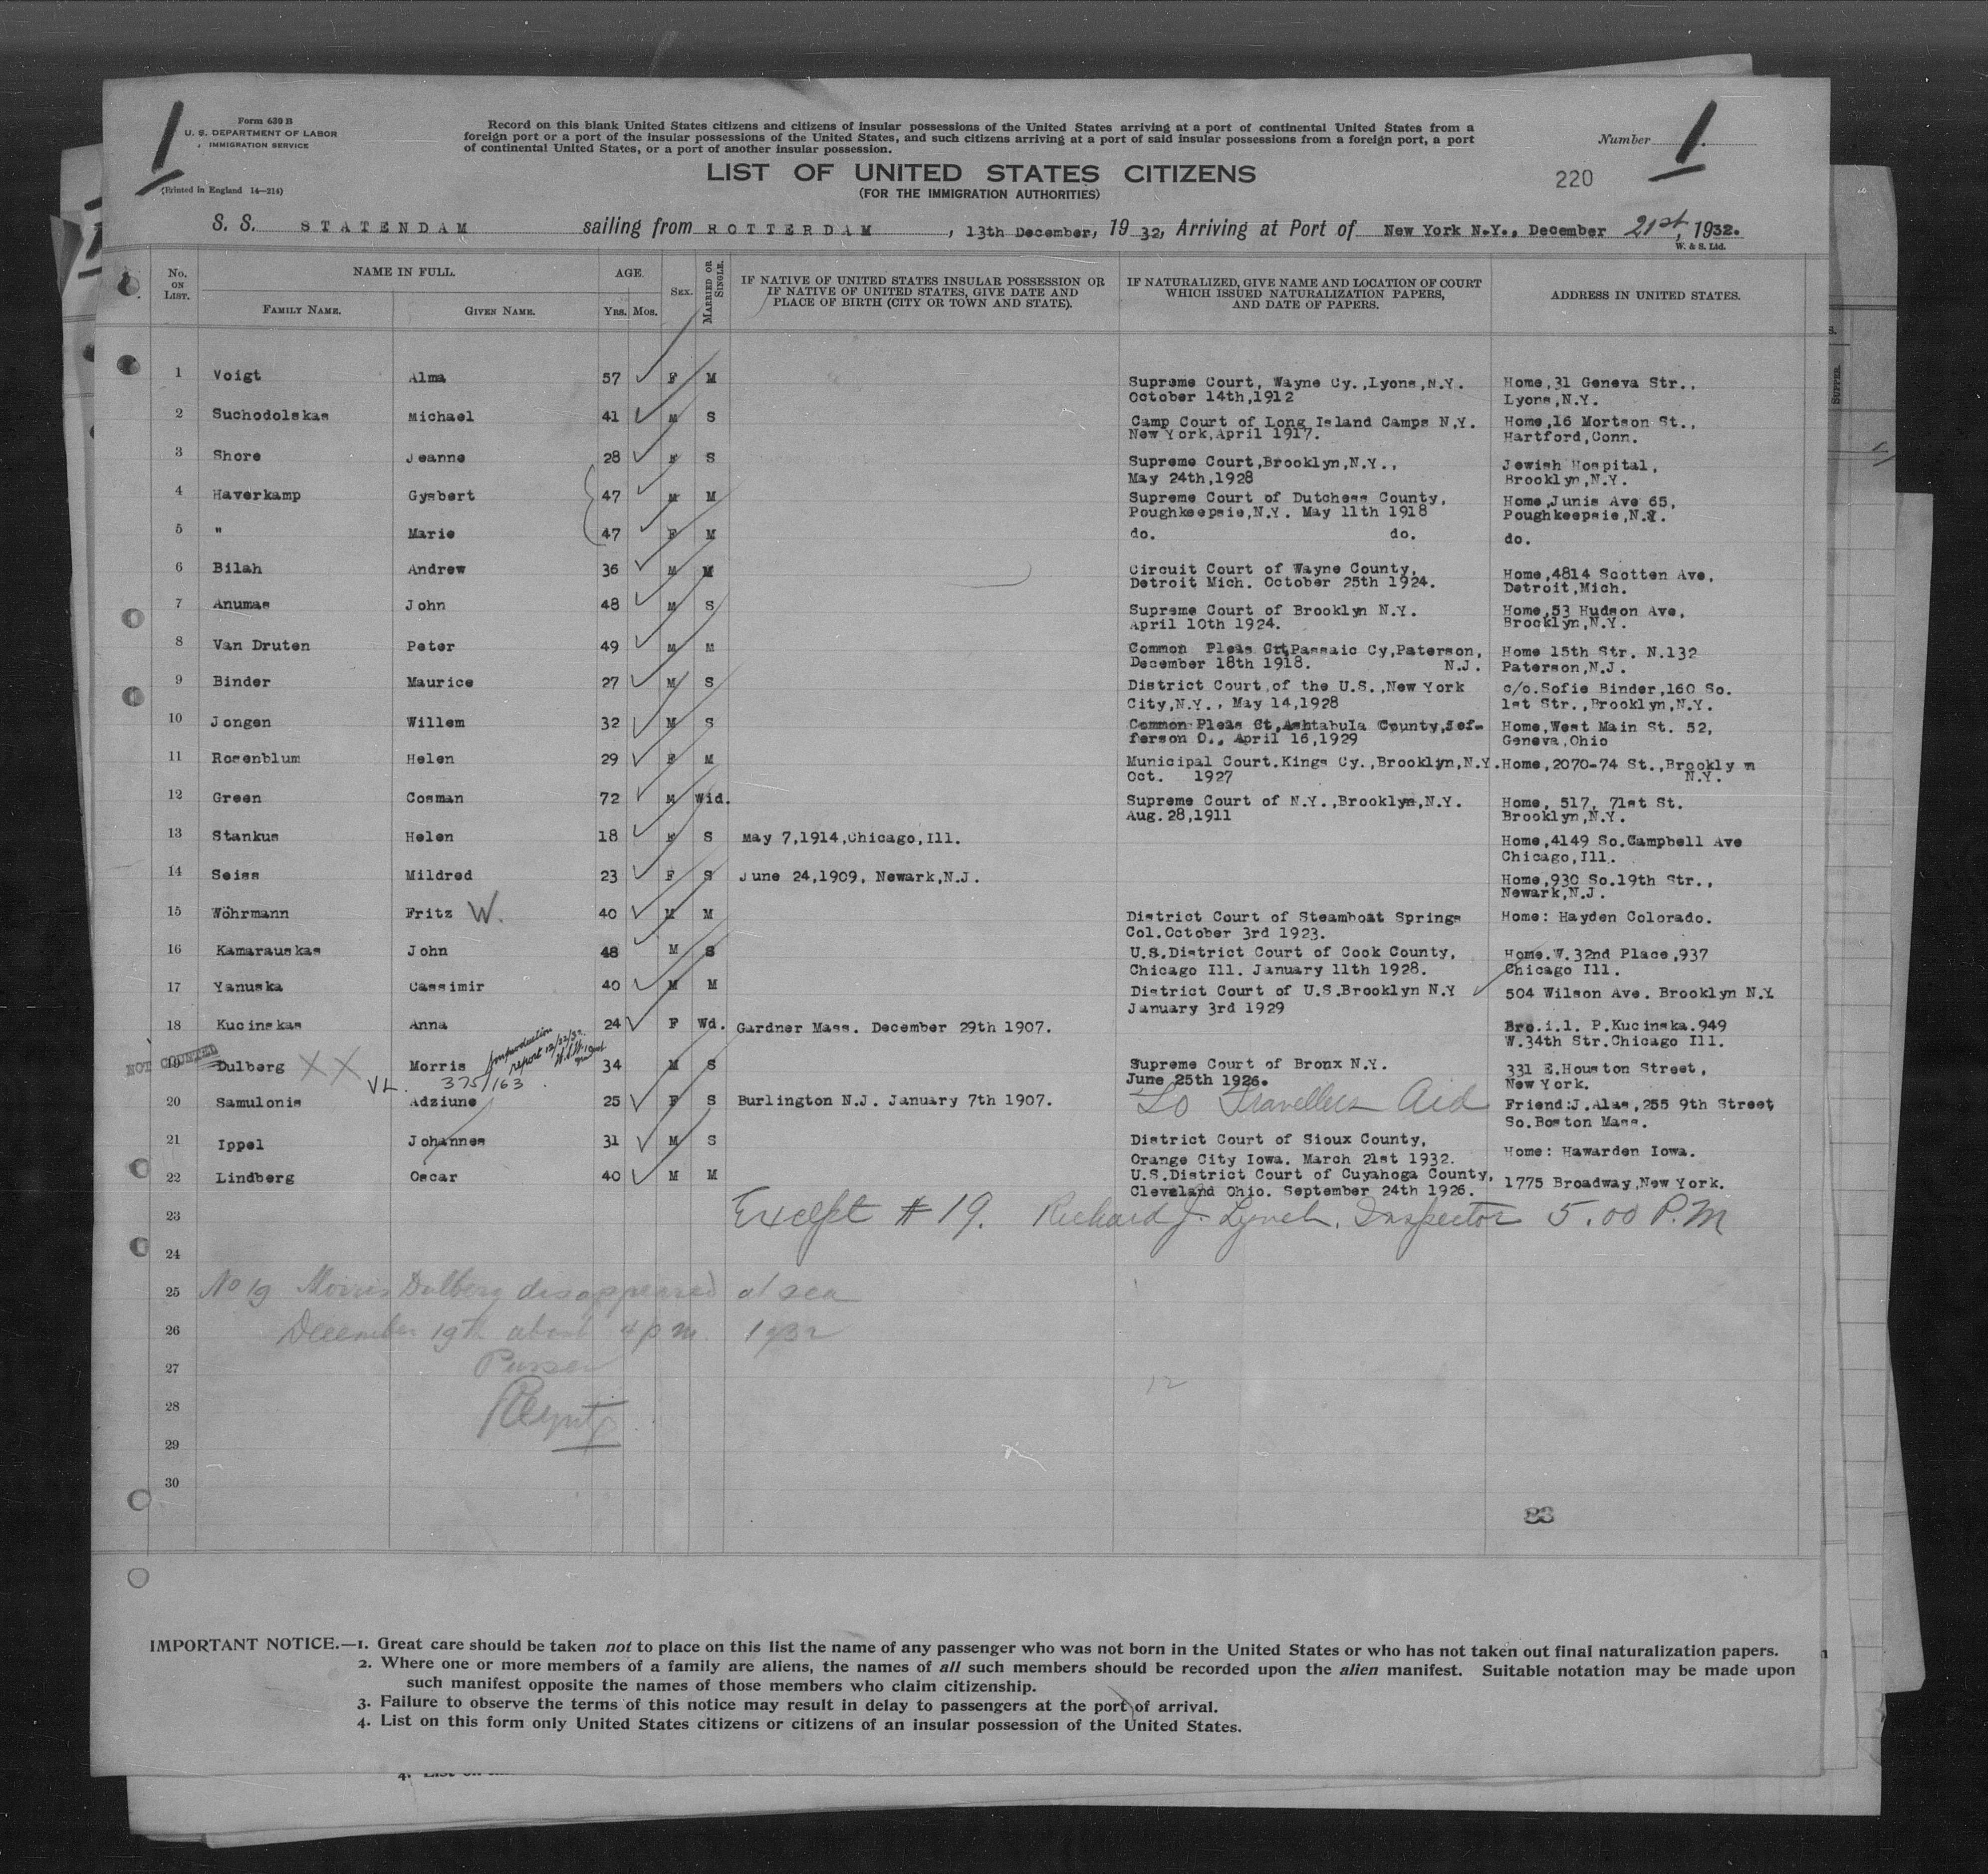 Form 630 B
U. S. DEPARTMENT OF LABOR
IMMIGRATION SERVICE
(Printed in England 14—214)
1
Record on this blank United States citizens and citizens of insular possessions of the United States arriving at a port of continental United States from a
foreign port or a port of the insular possessions of the United States, and such citizens arriving at a port of said insular possessions from a foreign port, a port
of continental United States, or a port of another insular possession.
Number 1.
LIST OF UNITED STATES CITIZENS
(FOR THE IMMIGRATION AUTHORITIES)
220
S. S. STATENDAM sailing from ROTTERDAM, 13th December, 1932, Arriving at Port of New York N.Y., December 21st, 1932.
W. & S. Ltd.
No. ON LIST. NAME IN FULL. AGE. SEX. MARRIED OR SINGLE. IF NATIVE OF UNITED STATES INSULAR POSSESSION OR IF NATIVE OF UNITED STATES, GIVE DATE AND PLACE OF BIRTH (CITY OR TOWN AND STATE). IF NATURALIZED, GIVE NAME AND LOCATION OF COURT WHICH ISSUED NATURALIZATION PAPERS, AND DATE OF PAPERS. ADDRESS IN UNITED STATES.
FAMILY NAME. GIVEN NAME. Yrs. Mos.
1 Voigt Alma 57 F M Supreme Court, Wayne Cy.,Lyons,N.Y. Home,31 Geneva Str.,
October 14th,1912 Lyons,N.Y.
2 Suchodolskas Michael 41 M S Camp Court of Long Island Camps N.Y. Home,16 Mortson St.,
New York,April 1917. Hartford,Conn.
3 Shore Jeanne 28 F S Supreme Court,Brooklyn,N.Y., Jewish Hospital,
May 24th,1928 Brooklyn,N.Y.
4 Haverkamp Gysbert 47 M M Supreme Court of Dutchess County, Home,Junis Ave 65,
Poughkeepsie,N.Y. May 11th 1918 Poughkeepsie,N.Y.
5 " Marie 47 F M do. do. do.
6 Bilah Andrew 36 M M Circuit Court of Wayne County, Home,4814 Scotten Ave,
Detroit Mich. October 25th 1924. Detroit,Mich.
7 Anumas John 48 M S Supreme Court of Brooklyn N.Y. Home,53 Hudson Ave,
April 10th 1924. Brooklyn,N.Y.
8 Van Druten Peter 49 M M Common Pleas Crt,Passaic Cy,Paterson, Home 15th Str. N.132
December 18th 1918. N.J. Paterson,N.J.
9 Binder Maurice 27 M S District Court,of the U.S.,New York c/o.Sofie Binder,160 So.
City,N.Y., May 14,1928 1st Str.,Brooklyn,N.Y.
10 Jongen Willem 32 M S Common Pleas Ct,Ashtabula County,Jef- Home,West Main St. 52,
ferson O., April 16,1929 Geneva,Ohio
11 Rosenblum Helen 29 F M Municipal Court.Kings Cy.,Brooklyn,N.Y. Home,2070-74 St.,Brooklyn
Oct. 1927 N.Y.
12 Green Cosman 72 M Wid. Supreme Court of N.Y.,Brooklyn,N.Y. Home, 517, 71st St.
Aug.28,1911 Brooklyn,N.Y.
13 Stankus Helen 18 F S May 7,1914,Chicago,Ill. Home,4149 So.Campbell Ave
Chicago,Ill.
14 Seiss Mildred 23 F S June 24,1909, Newark,N.J. Home,930 So.19th Str.,
Newark,N.J.
15 Wöhrmann Fritz W. 40 M M District Court of Steamboat Springs Home: Hayden Colorado.
Col.October 3rd 1923.
16 Kamarauskas John 48 M S U.S.District Court of Cook County, Home.W.32nd Place,937
Chicago Ill. January 11th 1928. Chicago Ill.
17 Yanuska Cassimir 40 M M District Court of U.S.Brooklyn N.Y 504 Wilson Ave. Brooklyn N.Y.
January 3rd 1929
18 Kucinskas Anna 24 F Wd. Gardner Mass. December 29th 1907. Bro.i.l. P.Kucinska.949
W.34th Str.Chicago Ill.
NOT COUNTED
report 12/22/32
19 Dulberg XX Morris 34 M S Supreme Court of Bronx N.Y. 331 E.Houston Street,
VL. 375/163 June 25th 1926. New York.
20 Samulonis Adziune 25 F S Burlington N.J. January 7th 1907. To Travellers Aid Friend:J.Alas,255 9th Street
So.Boston Mass.
21 Ippel Johannes 31 M S District Court of Sioux County, Home: Hawarden Iowa.
Orange City Iowa. March 21st 1932.
22 Lindberg Oscar 40 M M U.S.District Court of Cuyahoga County, 1775 Broadway,New York.
Cleveland Ohio. September 24th 1926.
23 Except # 19. Richard J. Lynch. Inspector 5.00 P.M
24
25 No 19 Morris Dulberg disappeared at sea
26 December 19th about 4 p.m. 1932
27 Purser
28
29
30
12
IMPORTANT NOTICE.—1. Great care should be taken not to place on this list the name of any passenger who was not born in the United States or who has not taken out final naturalization papers.
2. Where one or more members of a family are aliens, the names of all such members should be recorded upon the alien manifest. Suitable notation may be made upon
such manifest opposite the names of those members who claim citizenship.
3. Failure to observe the terms of this notice may result in delay to passengers at the port of arrival.
4. List on this form only United States citizens or citizens of an insular possession of the United States.